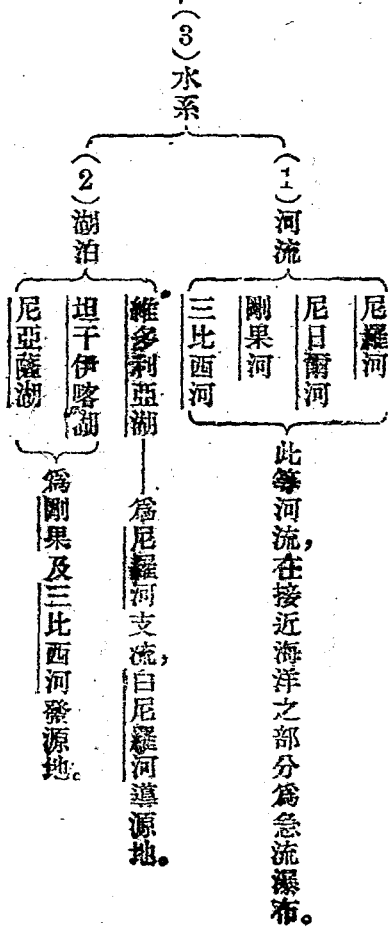 (3)水系
(1)河流
尼羅河
尼日爾河
剛果河
三比西河
此等河流,在接近海洋之部分爲急流瀑布。
(2)湖泊
維多利亞湖
爲尼羅河支流,白尼羅河導源地。
坦干伊喀湖
尼亞薩湖
爲剛果及三比西河發源地。